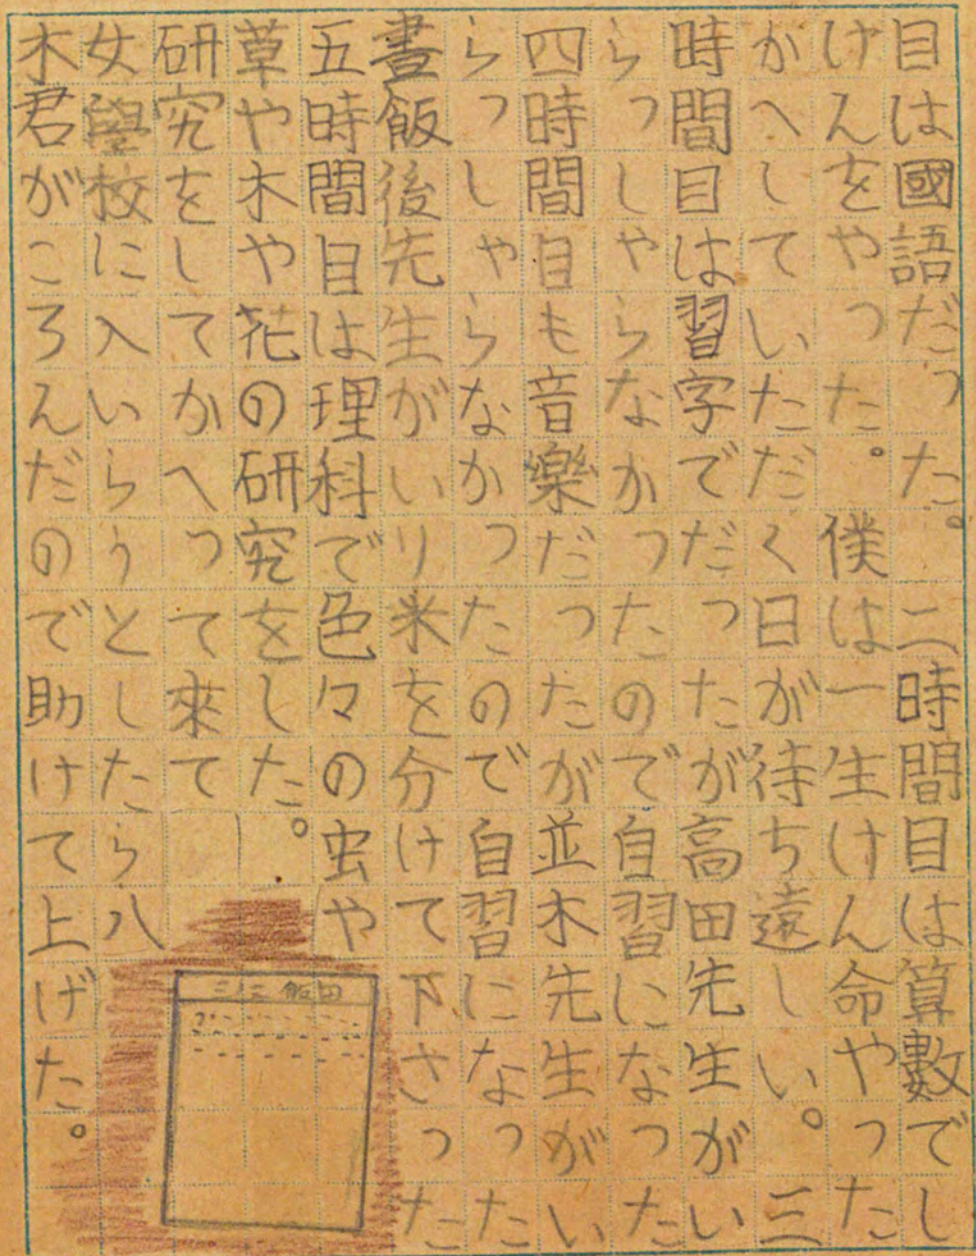 目は國語だった。二時間目は算數でし
けんをやった。僕は一生けん命やった
がへしていただく日が待ち遠しい。三
時間目は習字でだったが高田先生がい
らっしやらなかったので自習になった
四時間目も音樂だったが並木先生がい
らっしやらなかったので自習になった
晝飯後先生がいり米を分けて下さった
五時間目は理科で色々の虫や
草や木や花の研究をした。
研究をしてかへって來て
女學校に入いらうとしたら八
木君がころんだので助けて上げた。
三ノ三 飯田